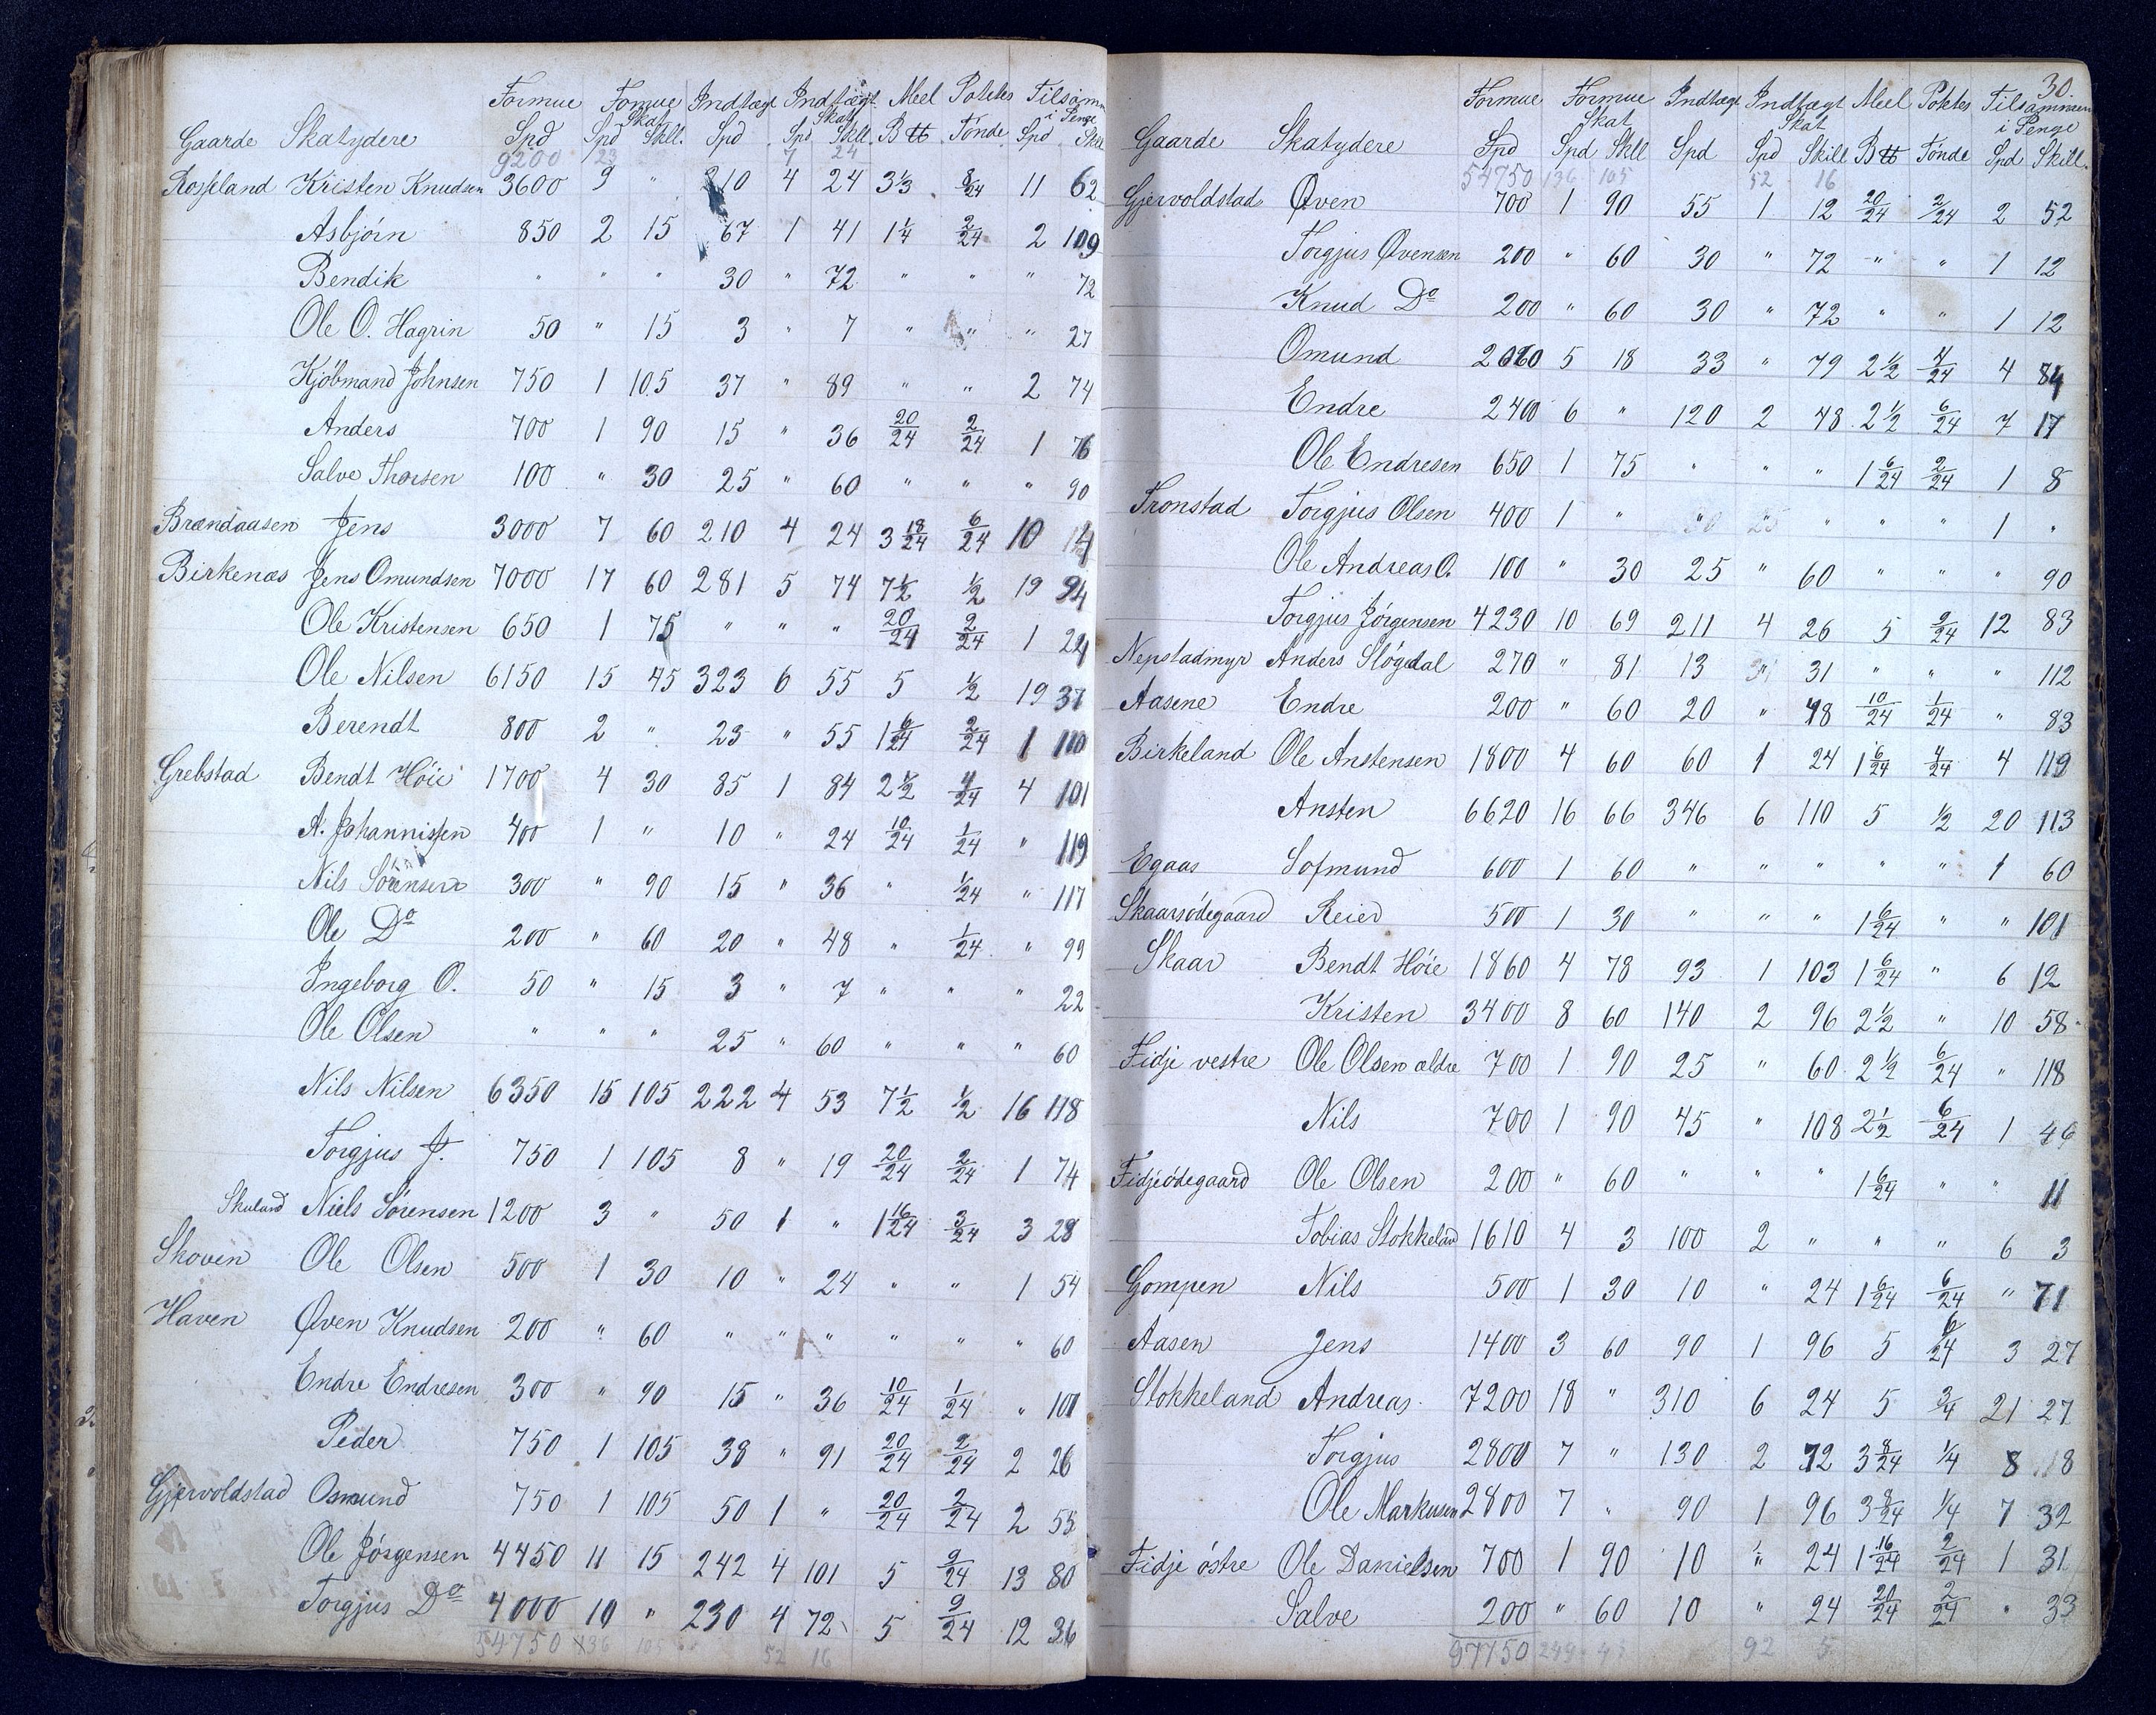 Gaarde Skatydere Formue Spd Formue Skat Spd Skill. Indtægt Spd Indtægt Skat Spd Skill Meel B ℔ Potetes Tønde Tilsamm i Penge Spd Skill
9200 23 7 24
Rosseland Kristen Knudsen 3600 9 " 210 4 24 3⅓ 8/24 11 62
Asbjörn 850 2 15 67 1 41 1¼ 2/24 2 109
Bendik " " " 30 " 72 " " " 72
Ole O. Hagrin 50 " 15 3 " 7 " " " 27
Kjöbmand Johnsen 750 1 105 37 " 89 " " 2 74
Anders 700 1 90 15 " 36 20/24 2/24 1 76
Salve Thorsen 100 " 30 25 " 60 " " " 90
Brændaasen Jens 3000 7 60 210 4 24 3 18/24 6/24 10 14
Birkenæs Jens Omundsen 7000 17 60 281 5 74 7½ ½ 19 94
Ole Kristensen 650 1 75 " " " 20/24 2/24 1 24
Ole Nilsen 6150 15 45 323 6 55 5 ½ 19 37
Berendt 800 2 " 23 " 55 1 6/24 2/24 1 110
Grebstad Bendt Höie 1700 4 30 85 1 84 2½ 4/24 4 101
A. Johannissen 400 1 " 10 " 24 10/24 1/24 " 119
Nils Sörensen 300 " 90 15 " 36 " 1/24 " 117
Ole Do 200 " 60 20 " 48 " 1/24 " 99
Ingeborg O. 50 " 15 3 " 7 " " " 22
Ole Olsen " " " 25 " 60 " " " 60
Nils Nilsen 6350 15 105 222 4 53 7½ ½ 16 118
Torgjus J. 750 1 105 8 " 19 20/24 2/24 1 74
Skuland Niels Sörensen 1200 3 " 50 1 " 1 16/24 3/24 3 28
Skoven Ole Olsen 500 1 30 10 " 24 " " 1 54
Haven Øven Knudsen 200 " 60 " " " " " " 60
Endre Endresen 300 " 90 15 " 36 10/24 1/24 " 101
Peder 750 1 105 38 " 91 20/24 2/24 2 26
Gjervoldstad Osmund 750 1 105 50 1 " 20/24 2/24 2 55
Ole Jörgensen 4450 11 15 242 4 101 5 9/24 13 80
Torgjus Do 4000 10 " 230 4 72 5 9/24 12 36
54750 136 105 52 16
30.
Gaarde Skatydere Formue Spd Formue Skat Spd Skill Indtægt Spd Indtægt Skat Spd Skill Meel B ℔ Poktes Tönde Tilsammen i Penge Spd Skill.
54750 136 105 52 16
Gjervoldstad Øven 700 1 90 55 1 12 20/24 2/24 2 52
Torgjus Øvensen 200 " 60 30 " 72 " " 1 12
Knud Do 200 " 60 30 " 72 " " 1 12
Omund 2060 5 18 33 " 79 2½ 4/24 4 84
Endre 2400 6 " 120 2 48 2½ 6/24 7 17
Ole Endresen 650 1 75 " " " 1 6/24 2/24 1 8
Tronstad Torgjus Olsen 400 1 " " " " " " 1 "
Ole Andreas O. 100 " 30 25 " 60 " " " 90
Torgjus Jörgensen 4230 10 69 211 4 26 5 9/24 12 83
Nepstadmyr Anders Slögedal 270 " 81 13 " 31 " " " 112
Aasene Endre 200 " 60 20 " 48 10/24 1/24 " 83
Birkeland Ole Anstensen 1800 4 60 60 1 24 1 6/24 4/24 4 119
Ansten 6620 16 66 346 6 110 5 ½ 20 113
Egaas Sofmund 600 1 60 " " " " " 1 60
Skaarsödegaard Reier 500 1 30 " " " 1 6/24 " " 101
Skaar Bendt Höie 1860 4 78 93 1 103 1 6/24 " 6 12
Kristen 3400 8 60 140 2 96 2½ " 10 58
Fidje vestre Ole Olsen ældre 700 1 90 25 " 60 2½ 6/24 " 118
Nils 700 1 90 45 " 108 2½ 6/24 1 46
Fidjeödegaard Ole Olsen 200 " 60 " " " 1 6/24 " " 11
Tobias Stokkeland 1610 4 3 100 2 " " " 6 3
Gompen Nils 500 1 30 10 " 24 1 6/24 6/24 " 71
Aasen Jens 1400 3 60 90 1 96 5 6/24 3 27
Stokkeland Andreas 7200 18 " 310 6 24 5 ¾ 21 27
Torgjus 2800 7 " 130 2 72 3 8/24 ¼ 8 18
Ole Markusen 2800 7 " 90 1 96 3 8/24 ¼ 7 32
Fidje östre Ole Danielsen 700 1 90 10 " 24 1 16/24 2/24 1 31
Salve 200 " 60 10 " 24 20/24 2/24 " 33
97750 92 5